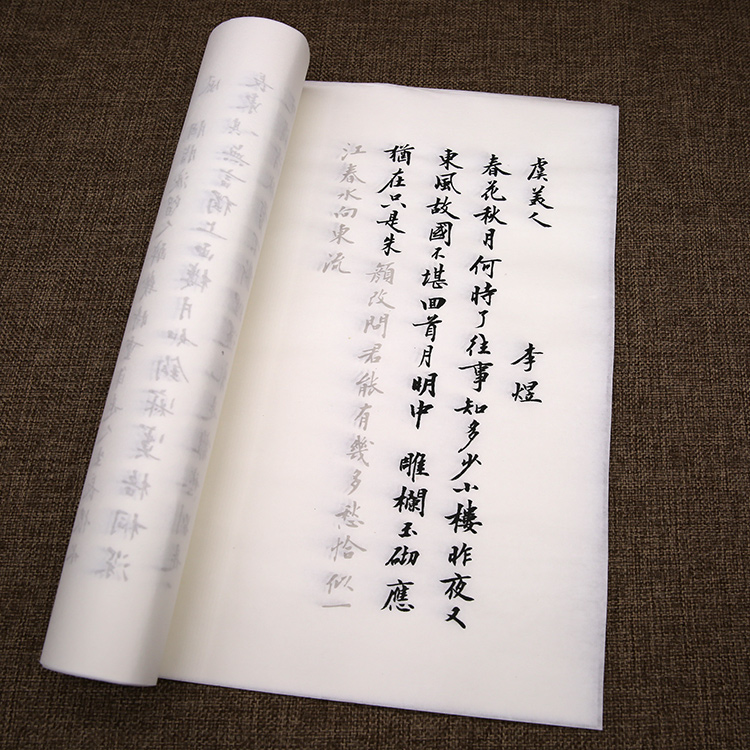 虞美人 李煜
春花秋月何時了往事知多少小樓昨夜又
東風故國不堪回首月明中 雕欄玉砌應
猶在只是朱顏改問君能有幾多愁恰似一
江春水向東流
無言獨上西樓月如鉤寂寞梧桐深